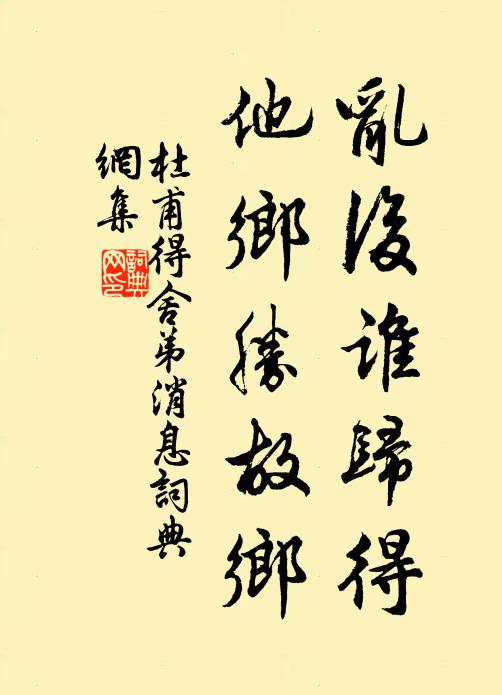 亂後誰歸得
他鄉勝故鄉
杜甫得舍弟消息詞典
網集
詞典
网印